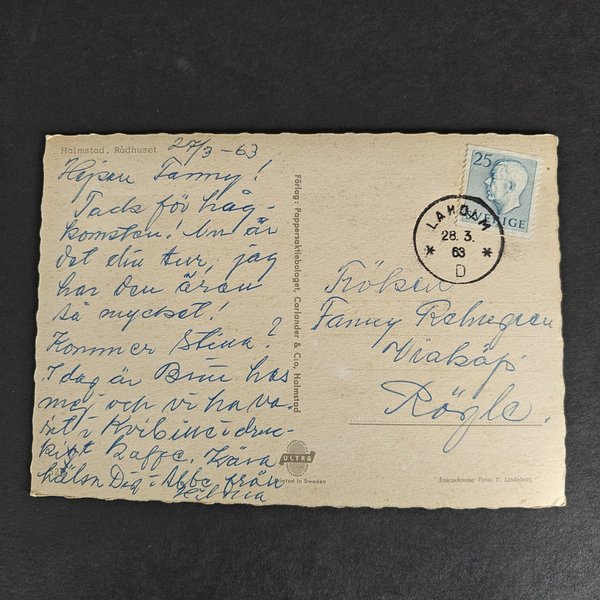 Halmstad. Rådhuset
27/3 -63
Hejsan Fanny!
Tack för håg-
komsten! Nu är
det din tur, jag
har den äran
så mycket!
Kommer Stina?
I dag är Brur hos
mej och vi ha va-
rit i Kvibille i druc-
kit kaffe. Kära
hälsn Dig i Abbe från
Förlag: Pappersaktiebolaget, Carlander & C:o, Halmstad
ULTRA
Printed in Sweden
25
SVERIGE
LAHOLM
28. 3.
63
D
Fröken
Fanny Rehngren
Rögle.
Anscochrome Foto: T. Lindeberg